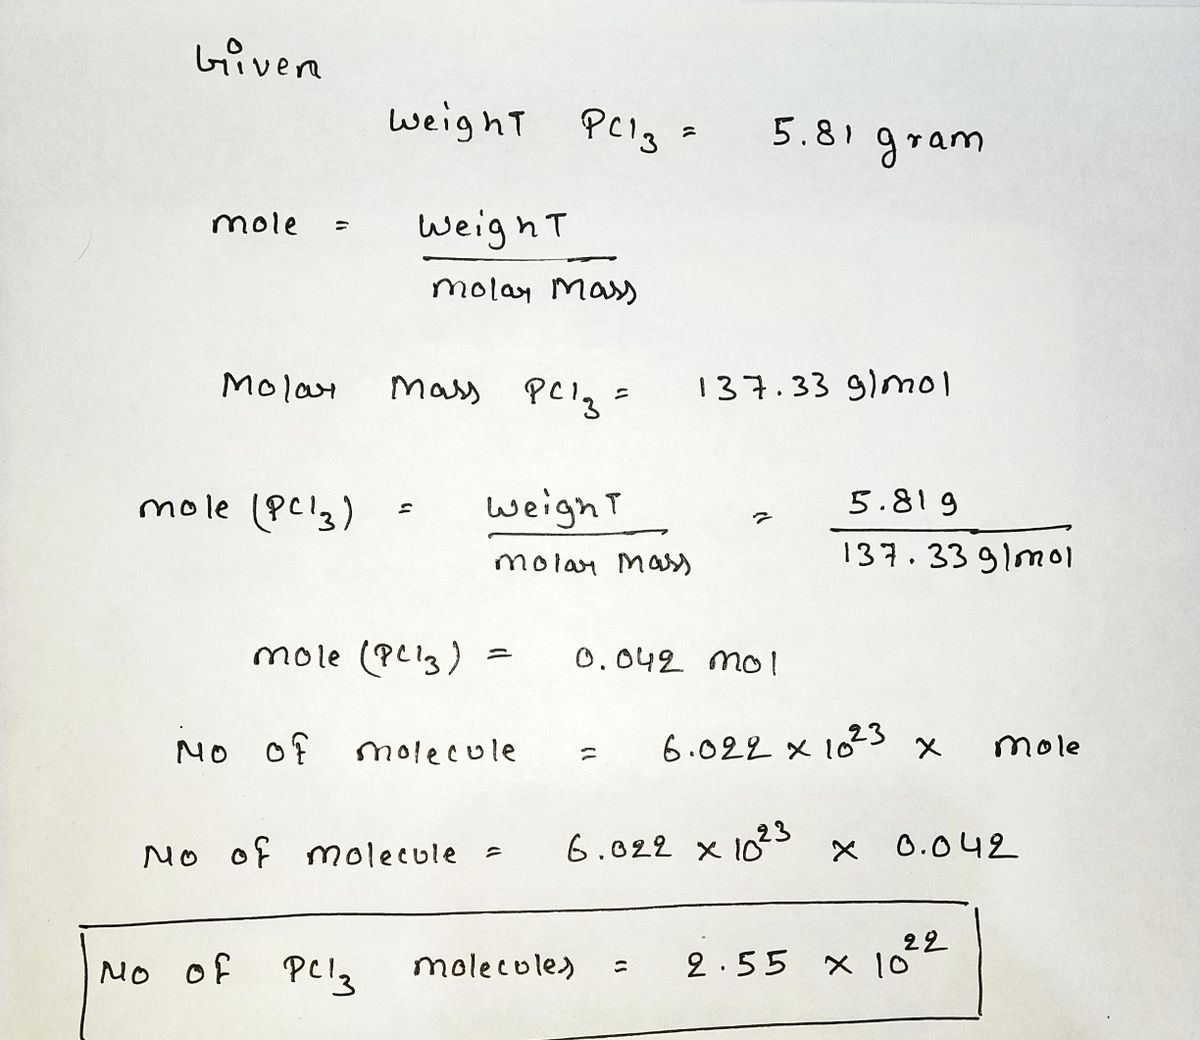 Given
Weight PCl₃ = 5.81 gram
mole = Weight / molar Mass
Molar Mass PCl₃ = 137.33 g/mol
mole (PCl₃) = Weight / molar Mass = 5.81 g / 137.33 g/mol
mole (PCl₃) = 0.042 mol
No of molecule = 6.022 × 10²³ × mole
No of molecule = 6.022 × 10²³ × 0.042
No of PCl₃ molecules = 2.55 × 10²²